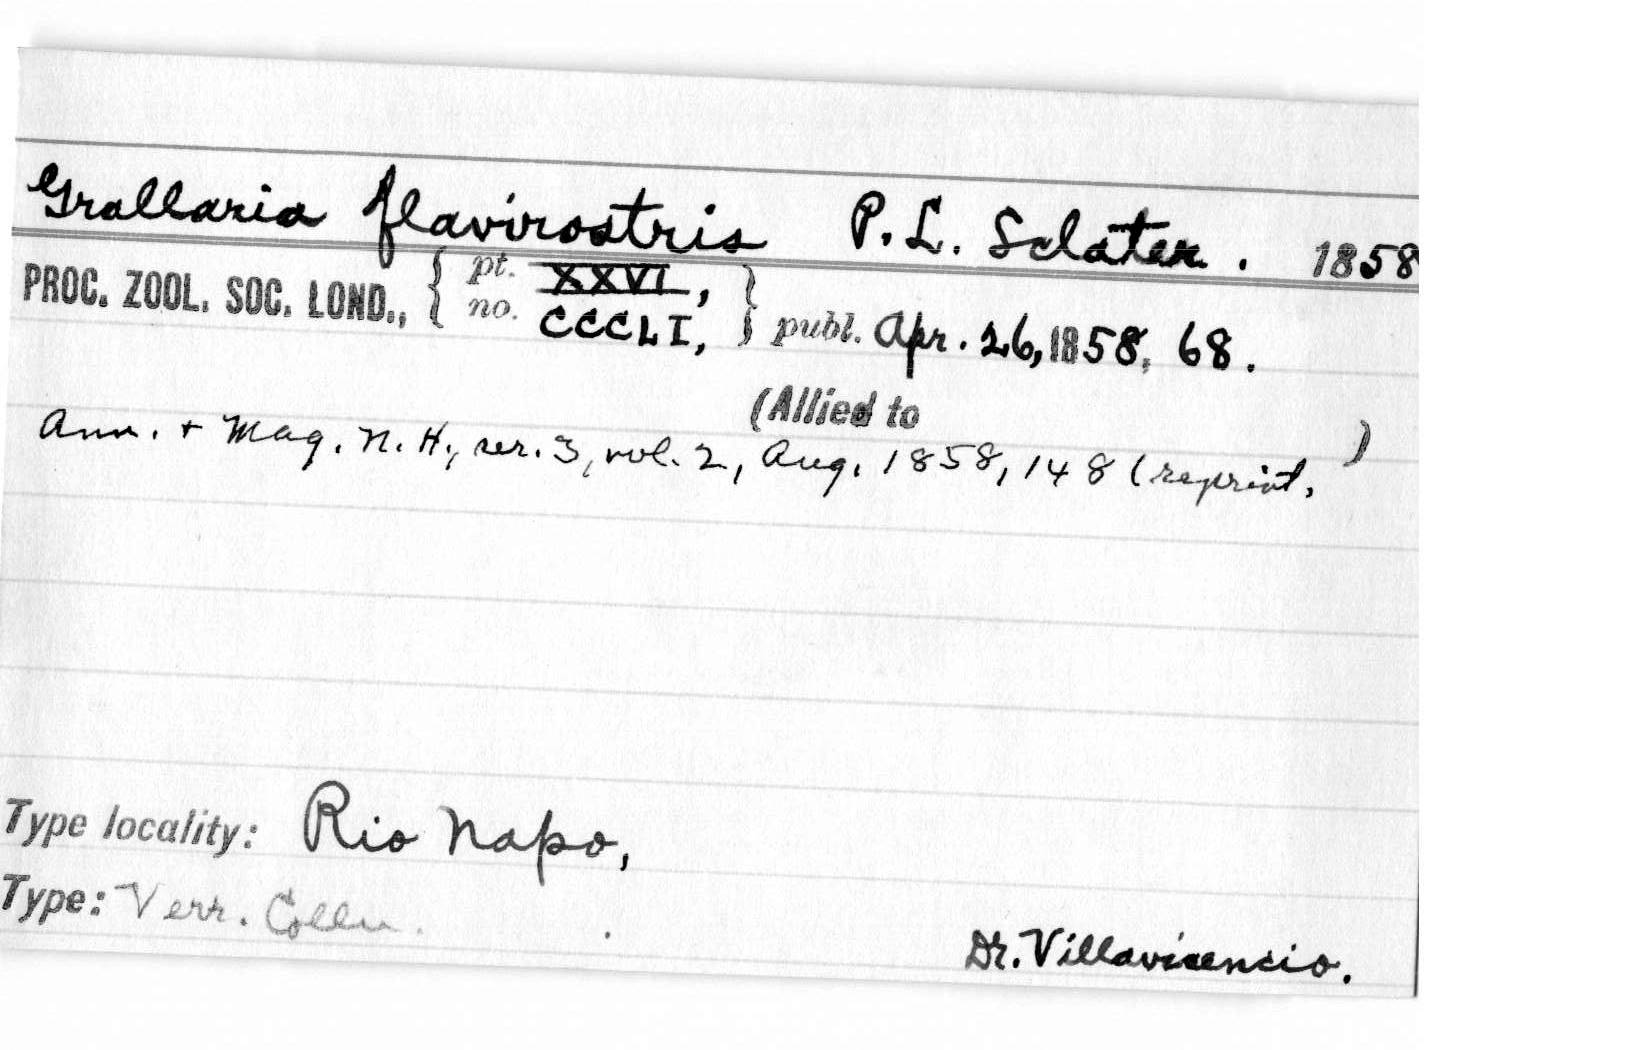 Grallaria flavirostris P. L. Sclater. 1858
PROC. ZOOL. SOC. LOND., { pt. XXVI, }
no. CCCLI, } publ. Apr. 26, 1858, 68.
(Allied to )
Ann. + Mag. N. H., ser. 3, vol. 2, Aug. 1858, 148 (reprint.
Type locality: Rio Napo,
Type: Verr. Colln.
Dr. Villavicencio.